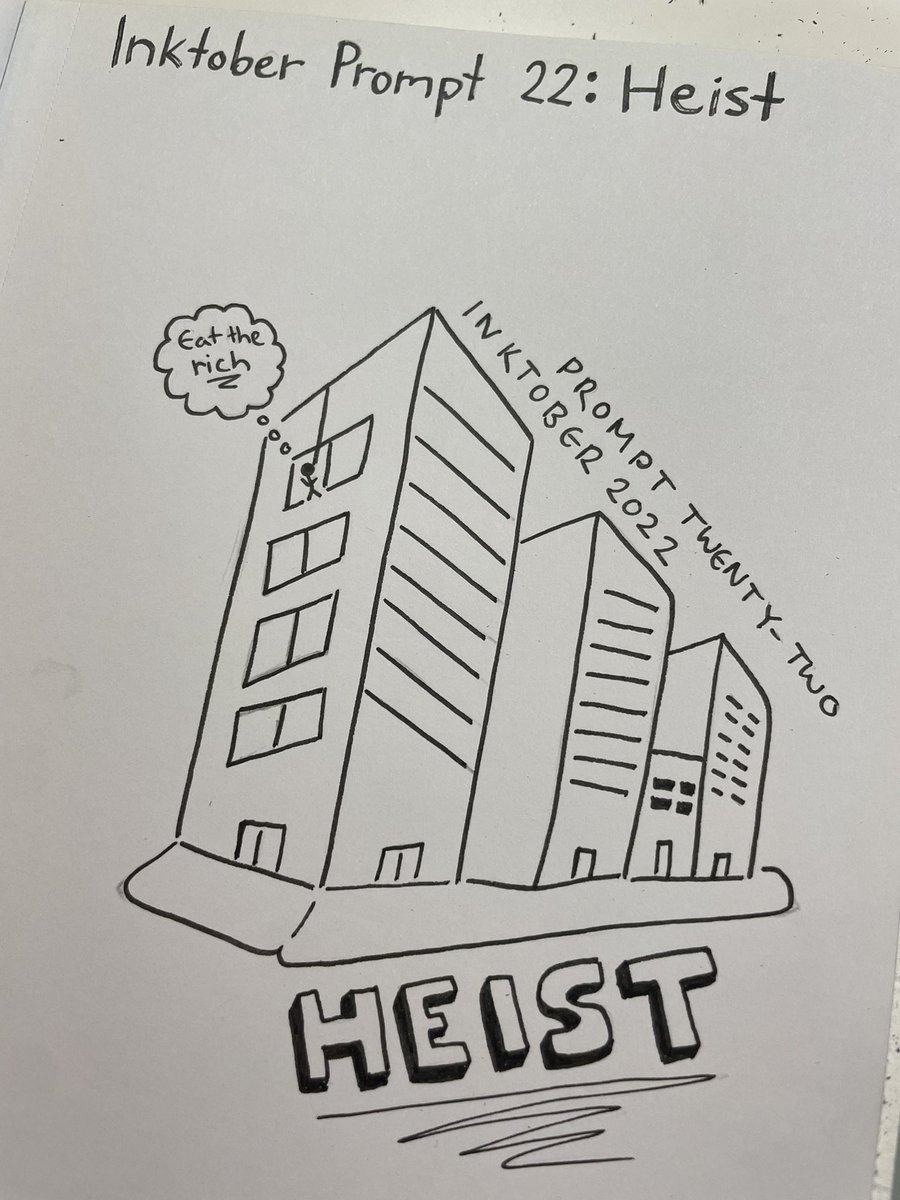 Inktober Prompt 22: Heist
Eat the
rich
INKTOBER 2022
PROMPT TWENTY-TWO
HEIST